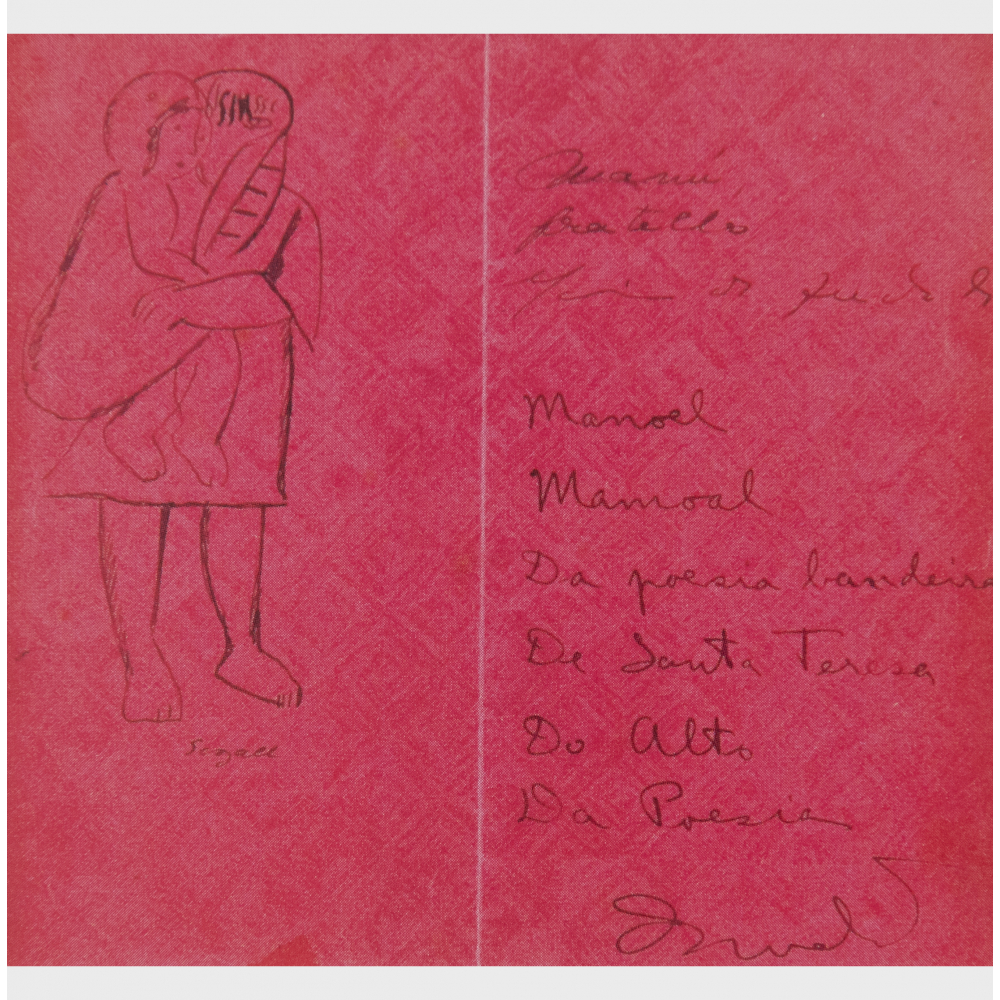 Segall
Manú
fratello
Manoel
Mamoal
Da poesia bandeira
De Santa Teresa
Do Alto
Da Poesia